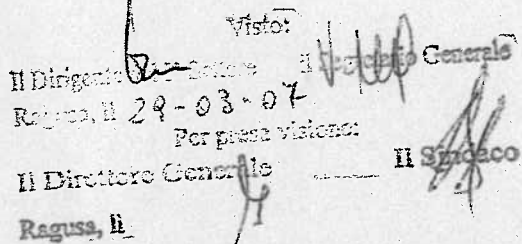 Visto:
Il Dirigente Settore Il Segretario Generale
Ragusa, li 29-03-07
Per presa visione:
Il Direttore Generale ______ Il Sindaco
Ragusa, li